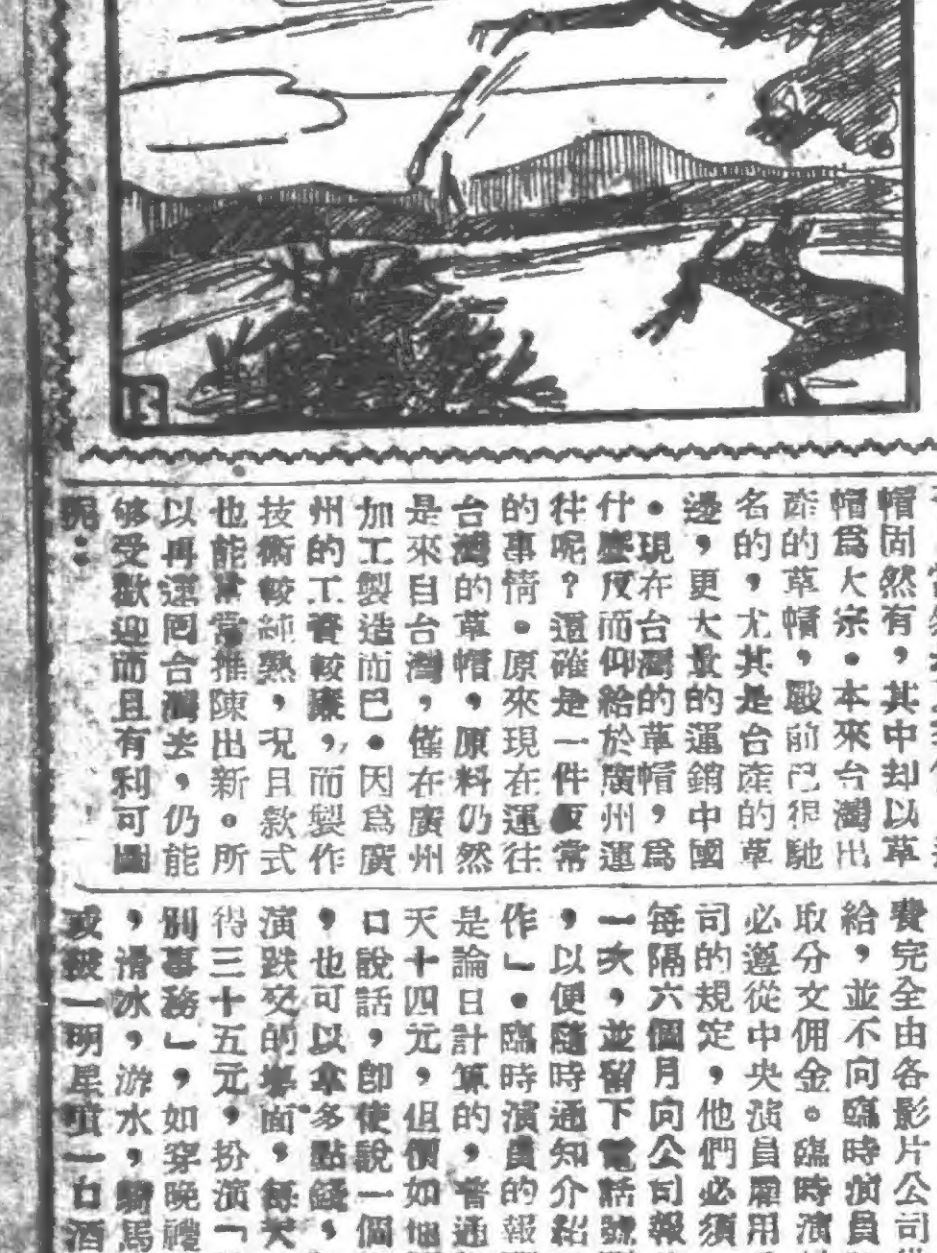 帽固然有，其中却以草
帽爲大宗。本來台灣出
產的草帽，戰前已很馳
名的，尤其是台產的草
邊，更大量的運銷中國
。現在台灣的草帽，爲
什麼反而仰給於廣州運
往呢？這確是一件反常
的事情。原來現在運往
台灣的草帽，原料仍然
是來自台灣，僅在廣州
加工製造而已。因爲廣
州的工資較廉，而製作
技術較純熟，況且款式
也能常常推陳出新。所
以再運回台灣去，仍能
够受歡迎而且有利可圖
呢！
費完全由各影片公司
給，並不向臨時演員
取分文佣金。臨時演
必遵從中央演員雇用
司的規定，他們必須
每隔六個月向公司報
一次，並留下電話號
，以便隨時通知介紹
作」。臨時演員的報
是論日計算的，普通
天十四元，但價如他
口說話，即使說一個
，也可以拿多點錢，
演跌交的場面，每天
得三十五元，扮演「
別事務」，如穿晚禮
，滑冰，游水，騎馬
或被一明星噴一口酒